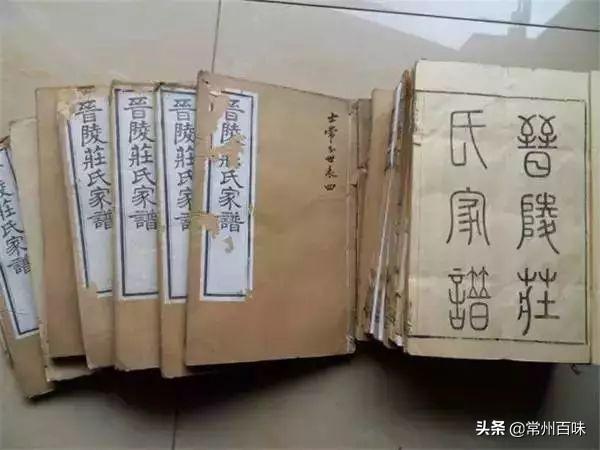 陵莊氏家譜
晉陵莊氏家譜
晉陵莊氏家譜
晉陵莊氏家譜
晉陵莊氏家譜
士常公世表四
晉陵莊
氏家譜
头条 @常州百味